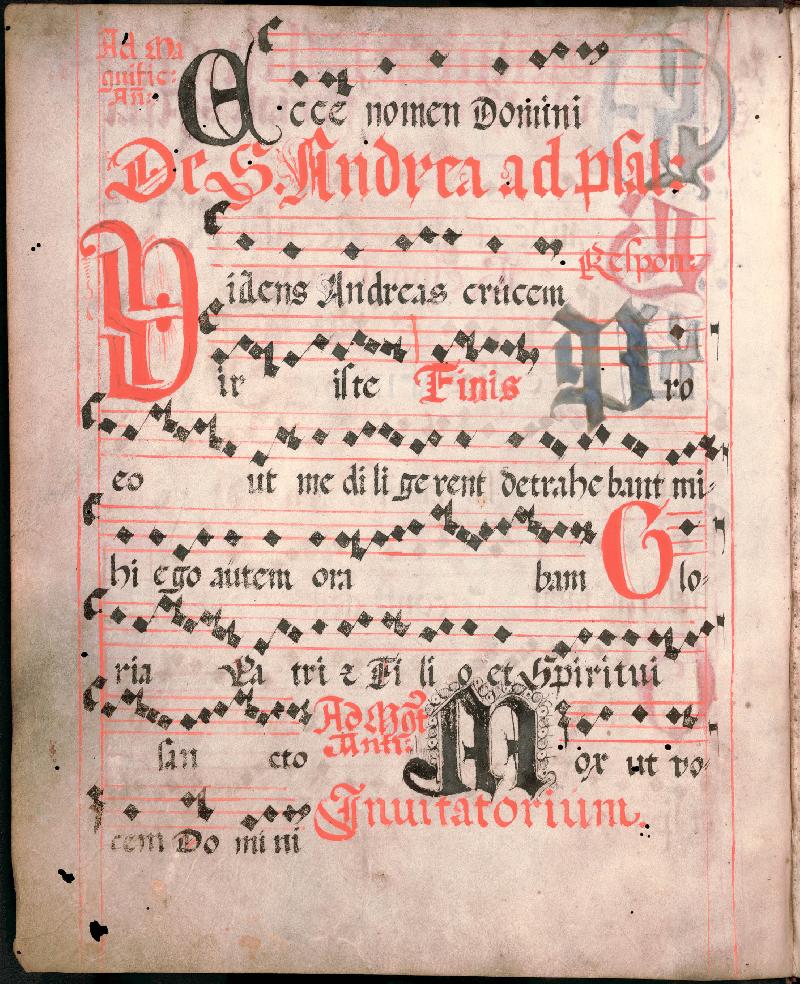 Ad Ma
gnific:
An:
Ecce nomen Domini
De S. Andrea ad psal:
Respon:
Videns Andreas crucem
Vir iste Finis Pro
eo ut me di li ge rent detrahe bant mi-
hi ego autem ora bam Glo-
ria Pa tri & Fi li o et Spiritui
san cto Ad Mgt
Antᵃ: Mox ut vo-
cem Do mi ni Invitatorium.